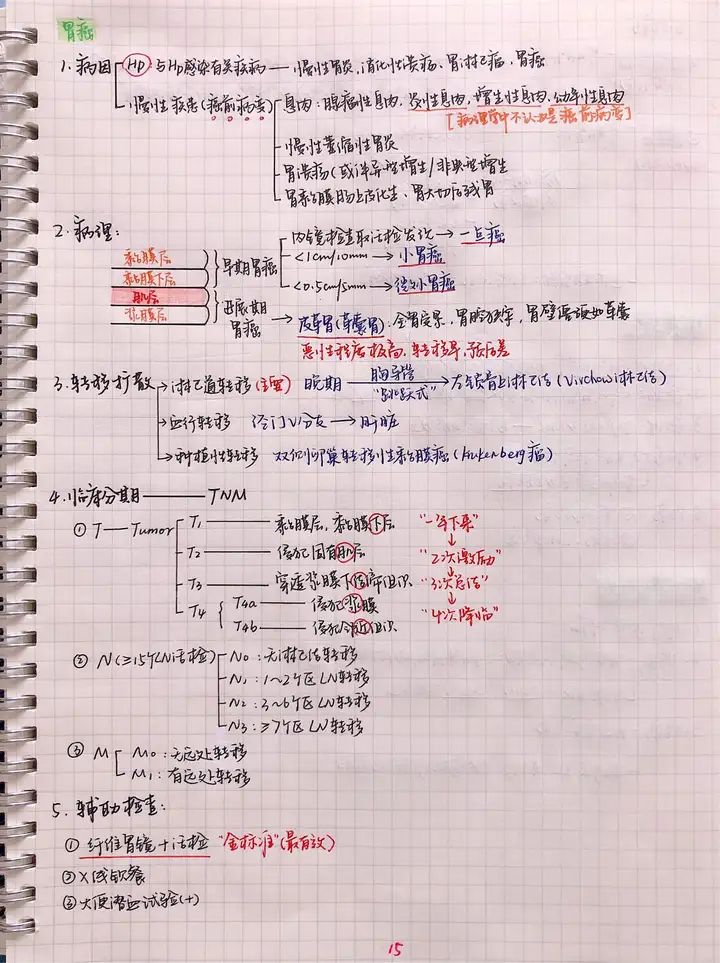 胃癌
1.病因 HP 与HP感染有关疾病——慢性胃炎,消化性溃疡,胃淋巴瘤,胃癌
慢性疾患(癌前病变) 息肉:腺瘤性息肉,炎性息肉,增生性息肉,幼年性息肉
[病理学中不认为是癌前病变]
慢性萎缩性胃炎
胃溃疡(或伴异型增生/非典型增生
胃黏膜肠上皮化生、胃大切后残胃
2.病理:
内镜检查取活检发现→一点癌
黏膜层
黏膜下层
早期胃癌
<1cm/10mm→小胃癌
肌层
<0.5cm/5mm→微小胃癌
浆膜层
进展期胃癌
→皮革胃(革囊胃):全胃受累,胃腔狭窄,胃壁僵硬如革囊
恶性程度极高,转移早,预后差
3.转移扩散→淋巴道转移(主要) 晚期 胸导管 "跳跃式" →左锁骨上淋巴结(Virchow淋巴结)
→血行转移 经门V分支→肝脏
→种植性转移 双侧卵巢转移性黏膜癌(Krukenberg瘤)
4.临床分期——TNM
①T—Tumor T1——黏膜层,黏膜下层 "一年下来"
T2——侵犯固有肌层 "2次激励"
T3——穿透浆膜下结缔组织 "3次总结"
T4 T4a——侵犯浆膜
T4b——侵犯邻近组织 "4次降临"
②N(≥15个LN活检) N0:无淋巴结转移
N1:1~2个区LN转移
N2:3~6个区LN转移
N3:≥7个区LN转移
③M M0:无远处转移
M1:有远处转移
5.辅助检查:
①纤维胃镜+活检 "金标准"(最有效)
②X线钡餐
③大便潜血试验(+)
15